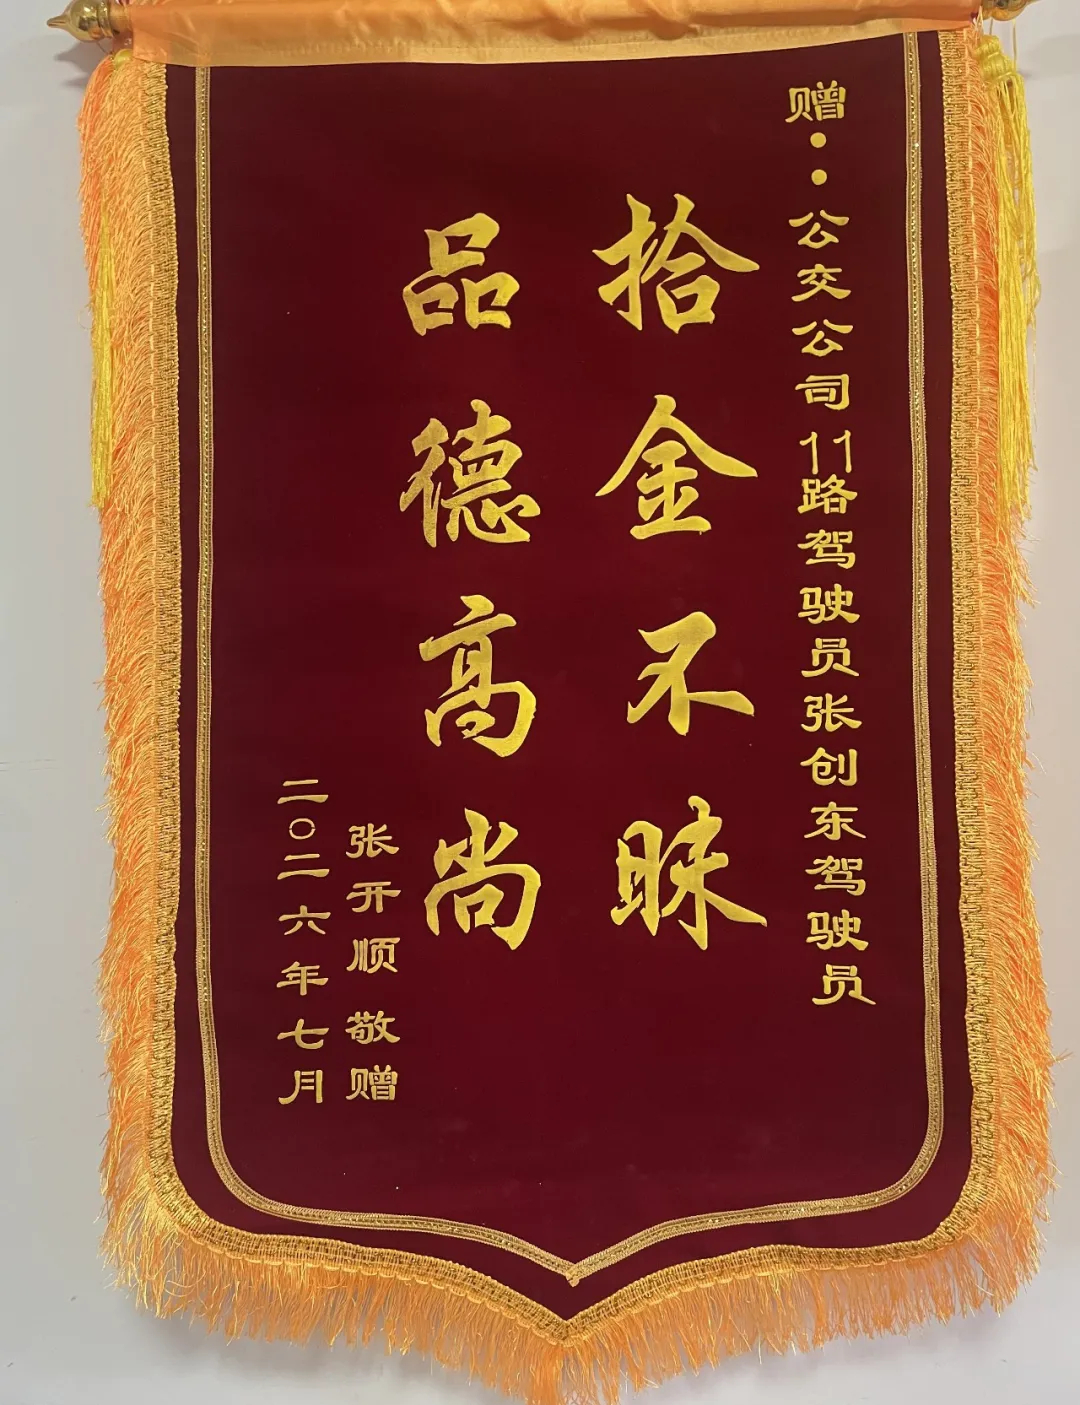 赠：公交公司11路驾驶员张创东驾驶员
拾金不昧
品德高尚
张开顺 敬赠
二〇二六年七月